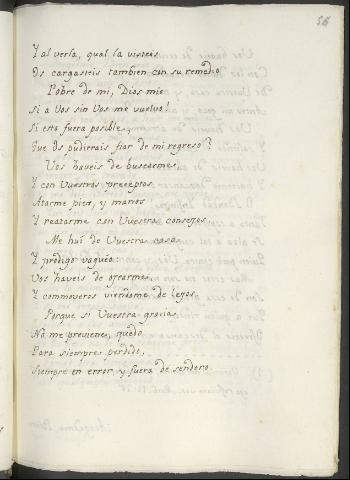 56
Y al verla, qual la visteis
Os cargasteis tambien con su remedio
Pobre de mi, Dios mio
Si a Vos sin Vos me vuelvo!
Si esto fuera posible,
Que Os pudierais fiar de mi regreso?
Vos haveis de buscarme,
Y con Vuestros preceptos
Atarme pies, y manos
Y reatarme con Vuestros consejos.
Me huí de Vuestra casa
Y prodigo vagueo
Vos haveis de ojearme,
Y commoveros viendome de lejos
Porque si Vuestra gracia
No me previene, quedo
Para siempre perdido,
Siempre en error, y fuera de sendero.